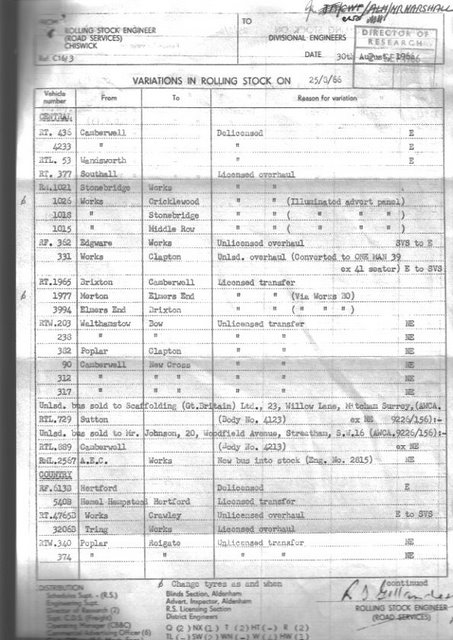 FROM
TO
ROLLING STOCK ENGINEER
(ROAD SERVICES)
CHISWICK
DIVISIONAL ENGINEERS
DIRECTOR OF
RESEARCH
Ref. C16/3
DATE 30th August 1966
VARIATIONS IN ROLLING STOCK ON 25/8/66
Vehicle number From To Reason for variation
CENTRAL
RT. 436 Camberwell Delicensed E
4233 " " E
RTL. 53 Wandsworth " E
RT. 377 Southall Licensed overhaul
RM.1021 Stonebridge Works " "
1026 Works Cricklewood " " (Illuminated advert panel)
1018 " Stonebridge " " ( " " " )
1015 " Middle Row " " ( " " " )
RF. 362 Edgware Works Unlicensed overhaul SVS to E
331 Works Clapton Unlsd. overhaul (Converted to ONE MAN 39
ex 41 seater) E to SVS
RT.1965 Brixton Camberwell Licensed transfer
1977 Merton Elmers End " " (Via Works DO)
3994 Elmers End Brixton " " ( " " " )
RTW.203 Walthamstow Bow Unlicensed transfer NE
238 " " " " NE
382 Poplar Clapton " " NE
90 Camberwell New Cross " " NE
312 " " " " " NE
317 " " " " " NE
Unlsd. bus sold to Scaffolding (Gt.Britain) Ltd., 23, Willow Lane, Mitcham Surrey, (AWCA.
RTL.729 Sutton (Body No. 4123) ex NE 9226/156):-
Unlsd. bus sold to Mr. Johnson, 20, Woodfield Avenue, Streatham, S.W.16 (AWCA.9226/156):-
RTL.889 Camberwell (Body No. 4213) ex NE
RML.2567 A.E.C. Works New bus into stock (Eng. No. 2815) NE
COUNTRY
RF.613B Hertford Delicensed E
540B Hemel Hempstead Hertford Licensed transfer
RT.4765B Works Crawley Unlicensed overhaul E to SVS
3206B Tring Works Licensed overhaul
RTW.340 Poplar Reigate Unlicensed transfer NE
374 " " " " NE
Change tyres as and when
/continued
DISTRIBUTION
Schedules Supt. - (R.S.)
Engineering Supt.
Director of Research (2)
Supt. C.D.S. (Freight)
Operating Manager (CB&C)
Commercial Advertising Officer (6)
Blinds Section, Aldenham
Advert. Inspector, Aldenham
R.S. Licensing Section
District Engineers
ROLLING STOCK ENGINEER
(ROAD SERVICES)